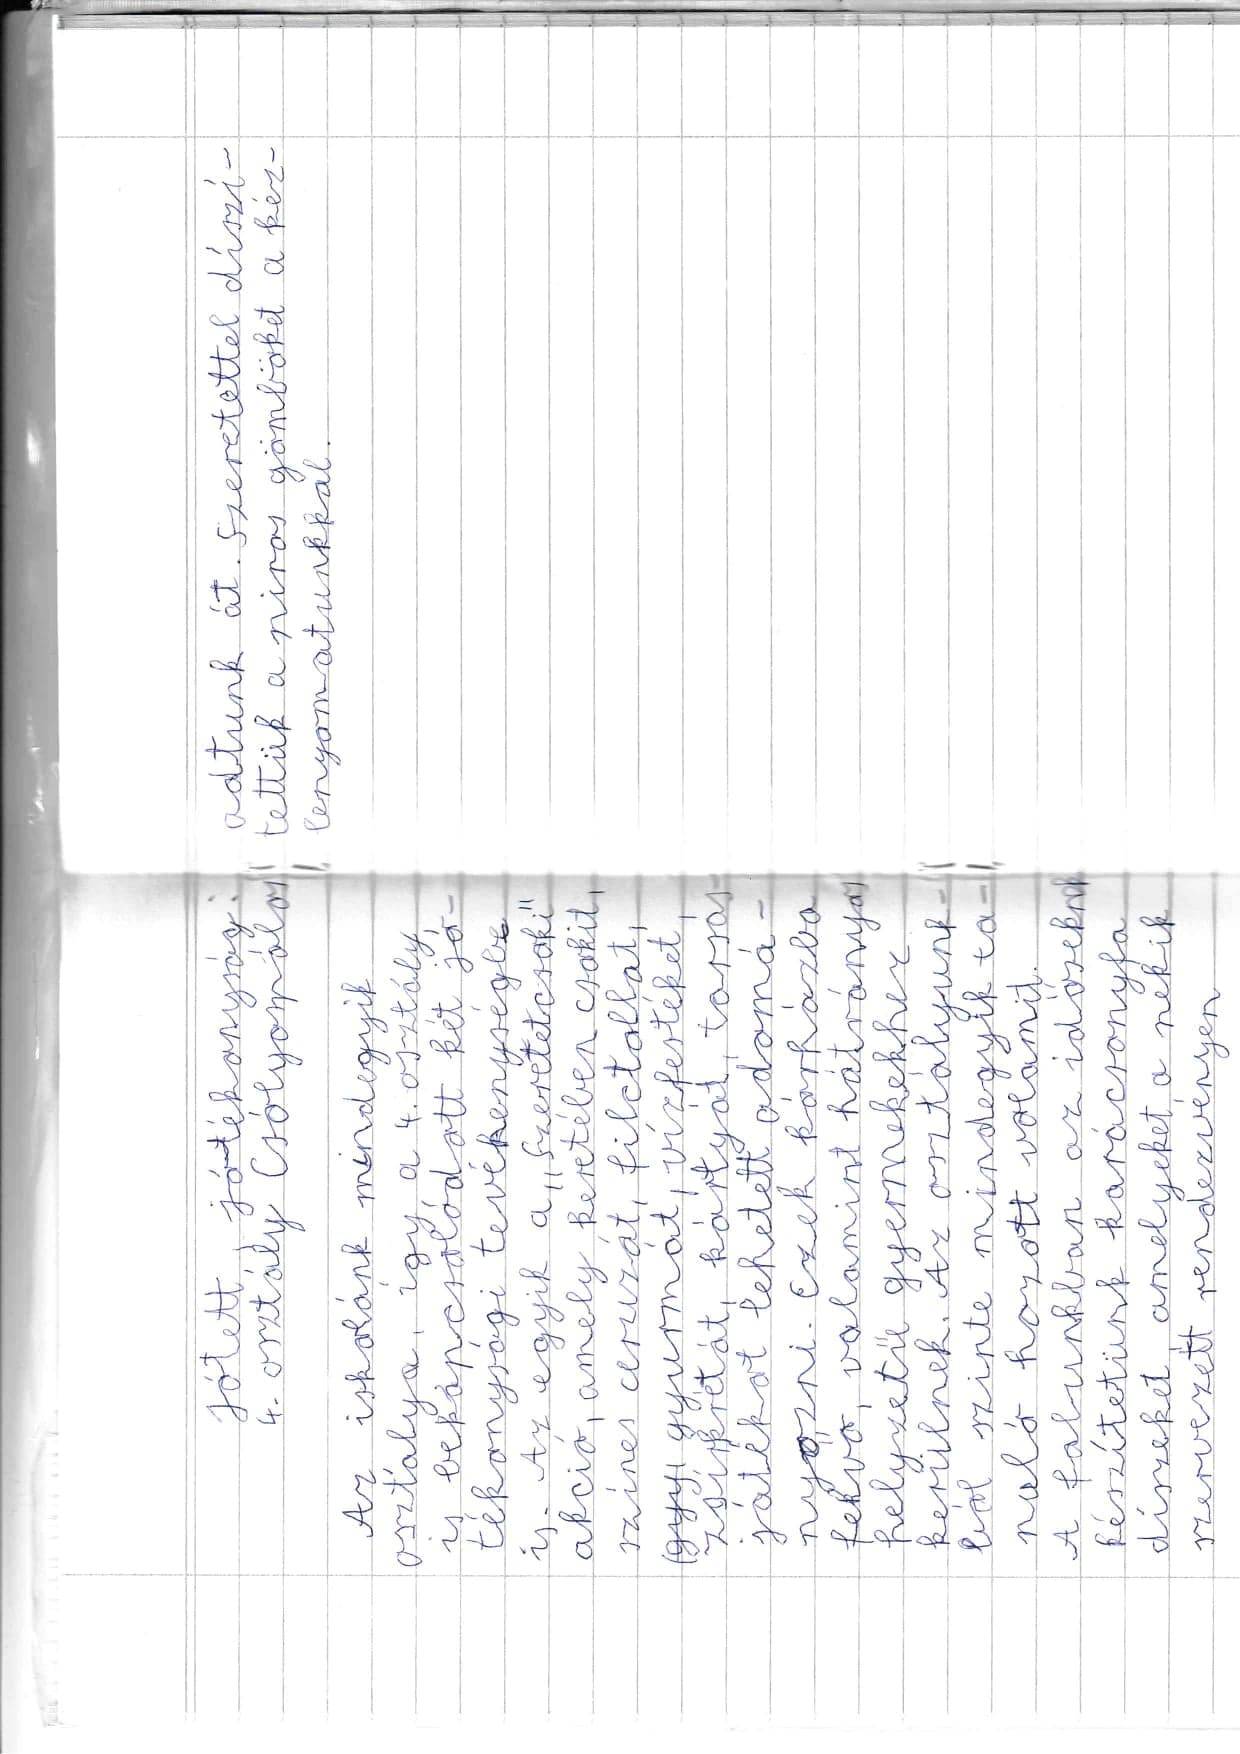 Jótett, jótékonyság:
4. osztály Csólyospálos
Az iskolánk mindegyik
osztálya, így a 4. osztály
is bekapcsolódott két jó-
tékonysági tevékenységbe
is. Az egyik a „Szeretetcsoki"
akció, amely keretében csokit,
színes ceruzát, filctollat,
gyurmát, vízfestéket,
zsírkrétát, kártyát, társas
játékot lehetett adomá-
nyozni. Ezek kórházba
fekvő, valamint hátrányos
helyzetű gyermekekhez
kerülnek. Az osztályunk-
ból szinte mindegyik ta-
nuló hozott valamit.
A falunkban az időseknek
készítetünk karácsonyfa
díszeket, amelyeket a nekik
szervezett rendezvényen
adtunk át. Szeretettel díszí-
tettük a piros gömböket a kéz-
lenyomatunkkal.